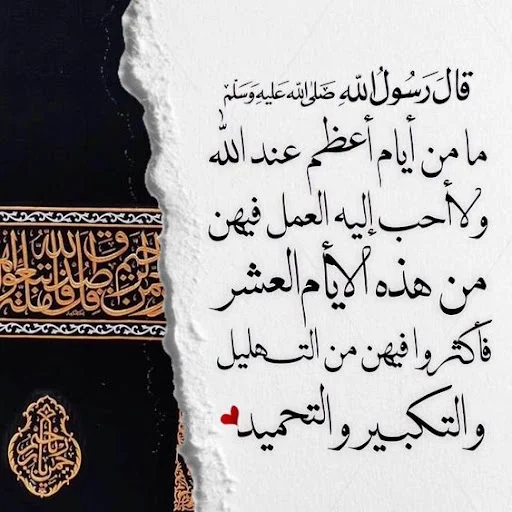 قَالَ رَسُولُ اللهِ صَلَى اللهُ عَلَيهِ وَسَلَّمَ
ما من أيام أعظم عند الله
ولا أحب إليه العمل فيهن
من هذه الأيام العشر
فأكثروا فيهن من التهليل
والتكبير والتحميد